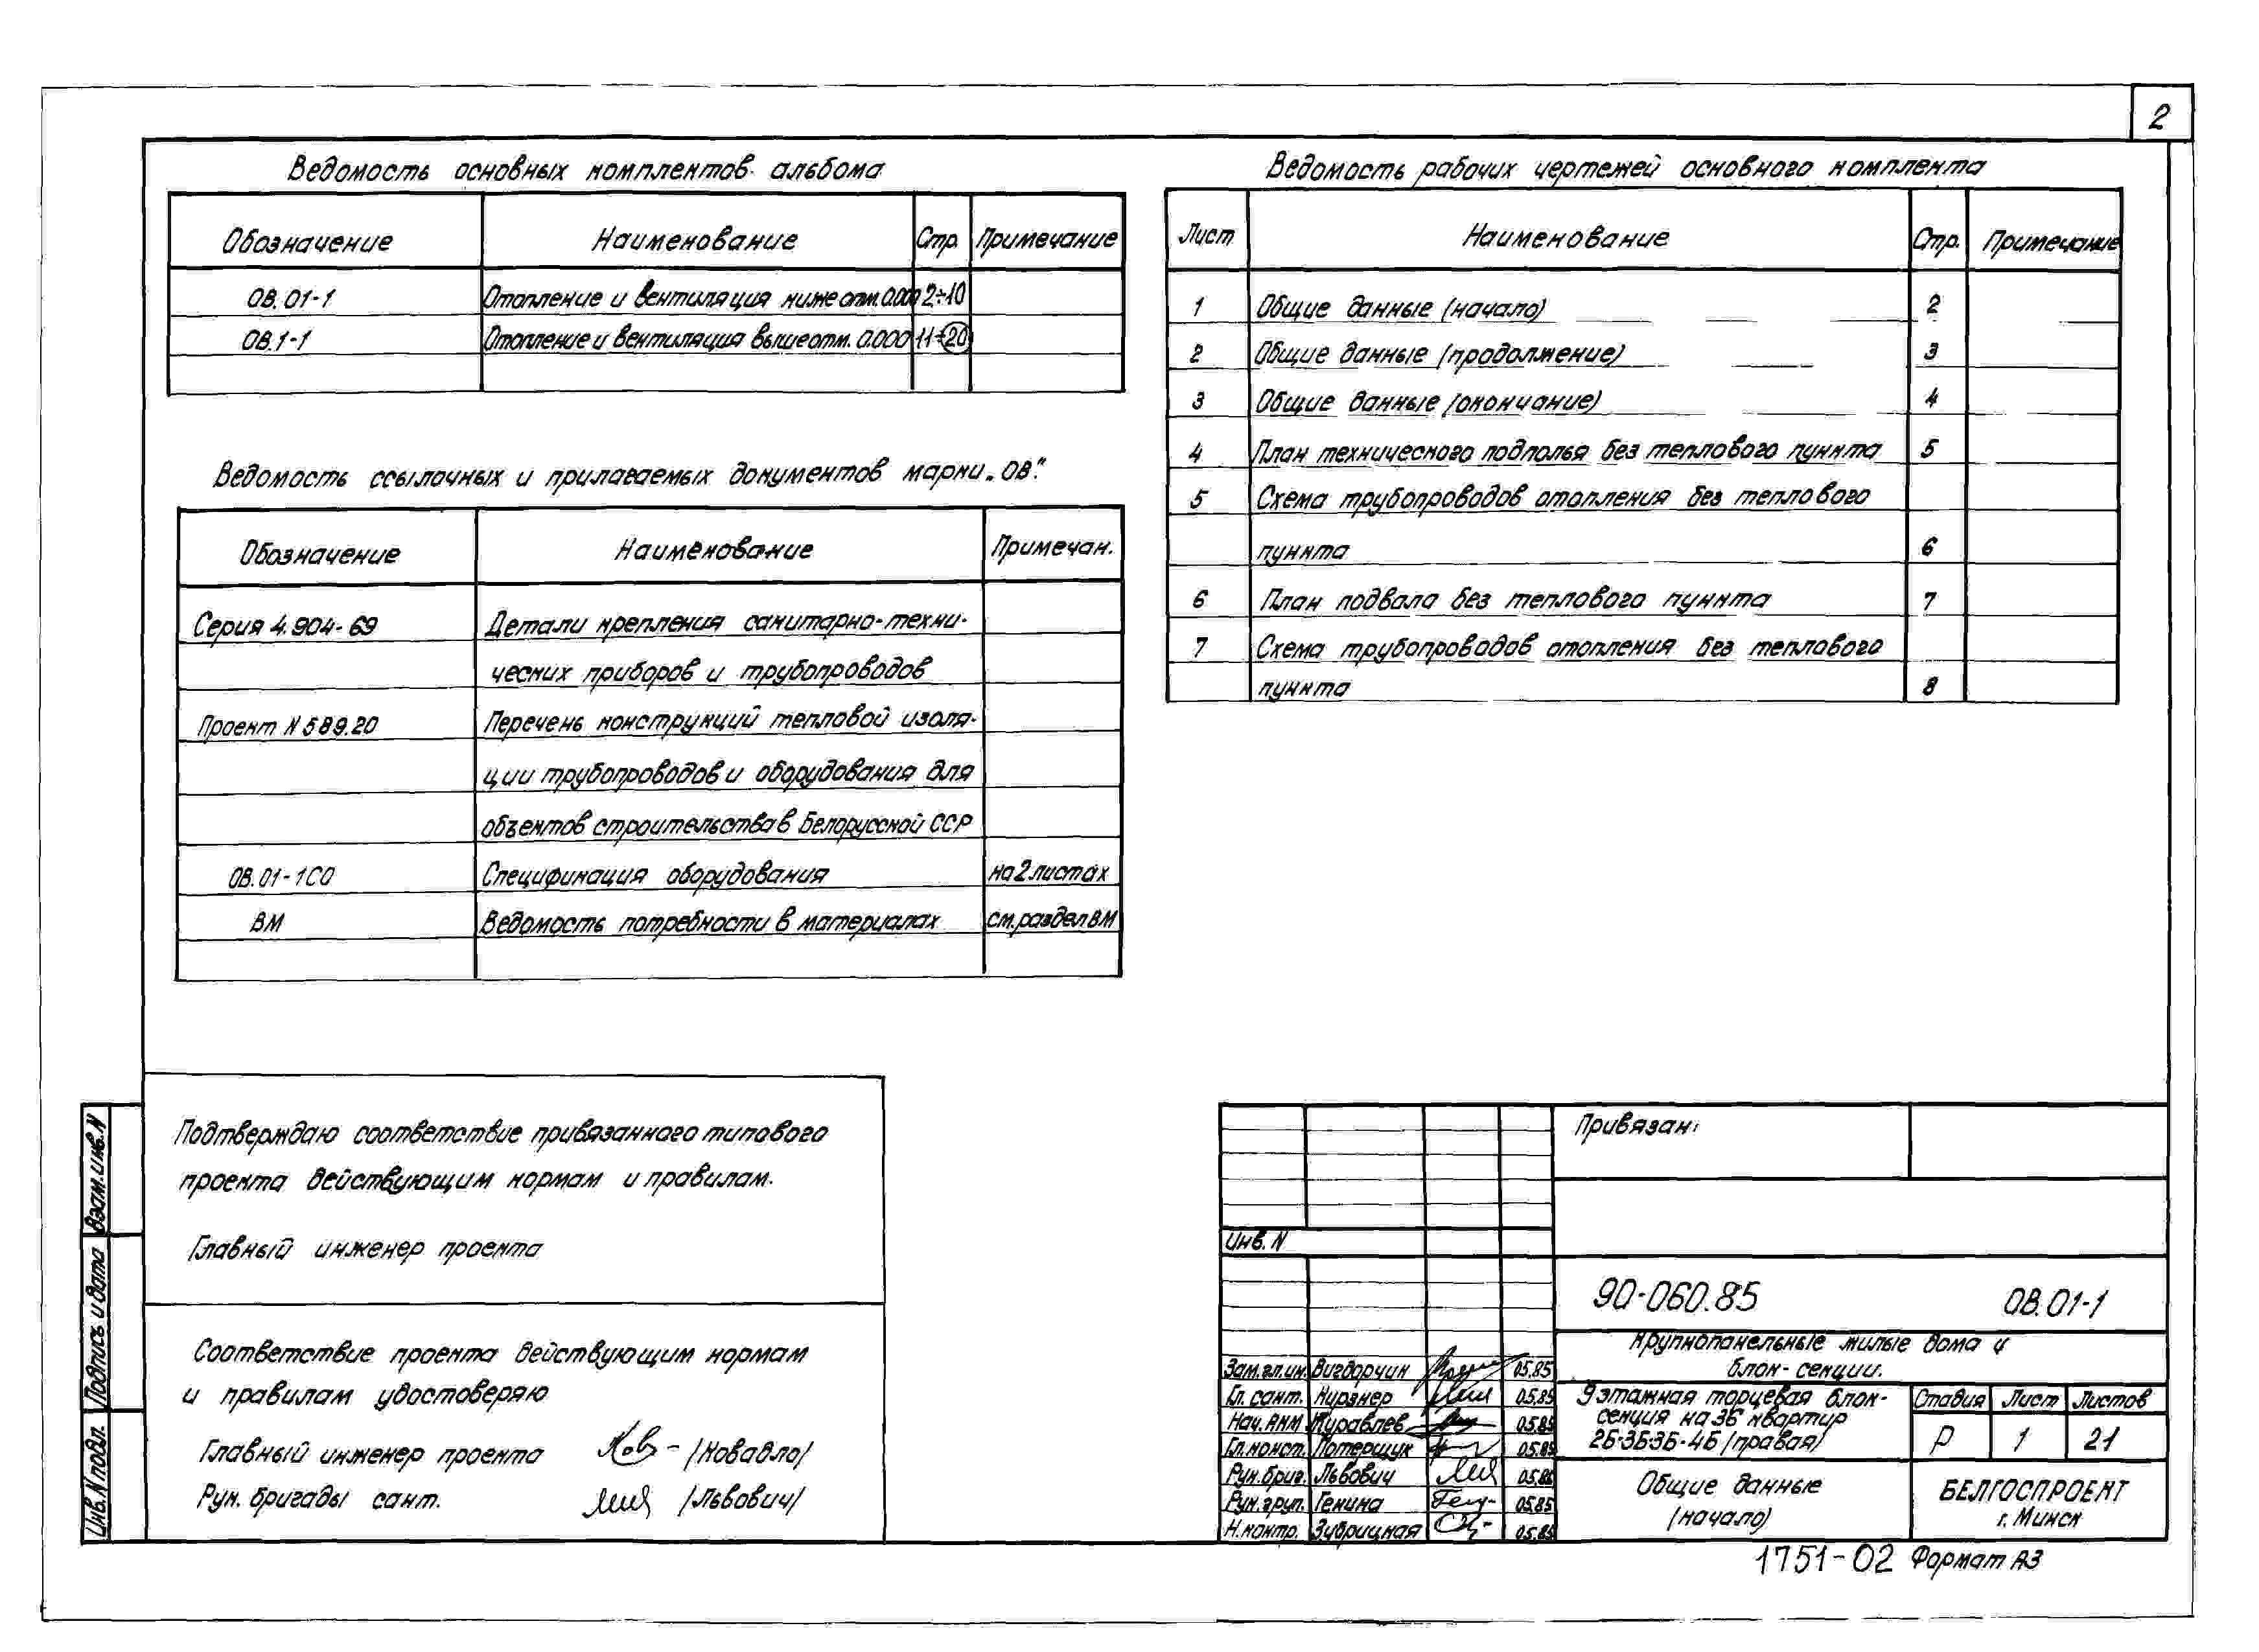 2
Ведомость основных комплектов альбома
Обозначение Наименование Стр. Примечание
ОВ.01-1 Отопление и вентиляция ниже отм. 0.000 2÷10
ОВ.1-1 Отопление и вентиляция выше отм. 0.000 11÷20
Ведомость ссылочных и прилагаемых документов марки „ОВ".
Обозначение Наименование Примечан.
Серия 4.904-69 Детали крепления санитарно-техни-
ческих приборов и трубопроводов
Проект N 589.20 Перечень конструкций тепловой изоля-
ции трубопроводов и оборудования для
объектов строительства в Белорусской ССР
ОВ.01-1СО Спецификация оборудования на 2 листах
ВМ Ведомость потребности в материалах см. раздел ВМ
Ведомость рабочих чертежей основного комплекта
Лист Наименование Стр. Примечание
1 Общие данные (начало) 2
2 Общие данные (продолжение) 3
3 Общие данные (окончание) 4
4 План технического подполья без теплового пункта 5
5 Схема трубопроводов отопления без теплового
пункта 6
6 План подвала без теплового пункта 7
7 Схема трубопроводов отопления без теплового
пункта 8
Подтверждаю соответствие привязанного типового
проекта действующим нормам и правилам.
Главный инженер проекта
Соответствие проекта действующим нормам
и правилам удостоверяю
Главный инженер проекта /Ковадло/
Рук. бригады сант. /Львович/
Взам. инв. N
Подпись и дата
Инв. N подл.
Привязан:
Инв. N
90-060.85 ОВ.01-1
Крупнопанельные жилые дома и
блок-секции.
Зам. гл. ин. Вигдорчик 05.85
Гл. сант. Кирзнер 05.85
Нач. АКМ Журавлев 05.85
Гл. конст. Потерщук 05.85
Рук. бриг. Львович 05.85
Рук. груп. Генина 05.85
Н. контр. Зубрицкая 05.85
9 этажная торцевая блок-
секция на 36 квартир
2Б-3Б-3Б-4Б (правая)
Стадия Лист Листов
Р 1 21
Общие данные
(начало)
БЕЛГОСПРОЕКТ
г. Минск
1751-02 Формат А3